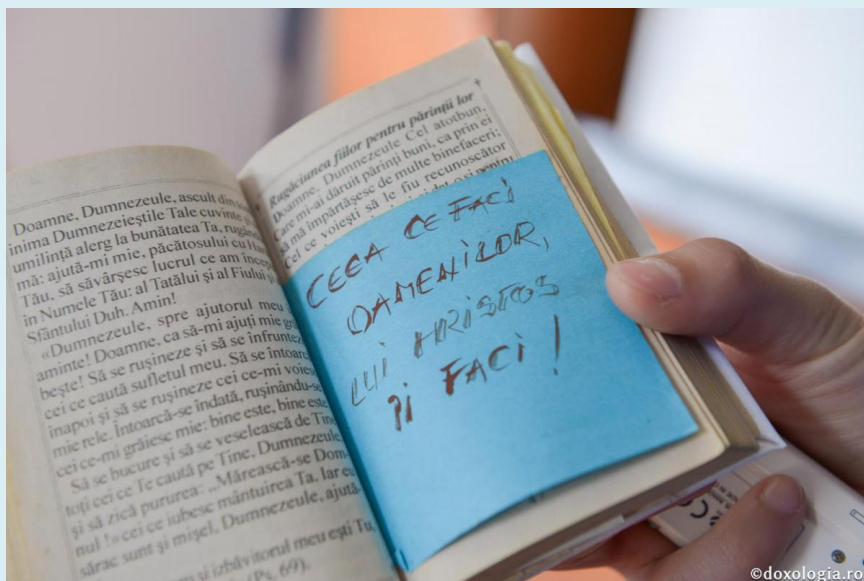 Doamne, Dumnezeule, ascult din
inima Dumnezeieștile Tale cuvinte și
umilință alerg la bunătatea Ta,
mă: ajută-mi mie, păcătosului cu
Tău, să săvârșesc lucrul ce am
în Numele Tău: al Tatălui și al Fiului
Sfântului Duh. Amin!
«Dumnezeule, spre ajutorul meu
aminte! Doamne, ca să-mi ajuți mie
bește! Să se rușineze și să se înfrunteze
cei ce caută sufletul meu. Să se
înapoi și să se rușineze cei ce-mi
mie rele. Întoarcă-se îndată, rușinându-se
cei ce-mi grăiesc mie: bine este, bine este
Să se bucure și să se veselească de Tine
toți cei ce Te caută pe Tine, Dumnezeule
și să zică pururea: „Mărească-se
nul !» cei ce iubesc mântuirea Ta. Iar eu
sărac sunt și mișel, Dumnezeule,
și izbăvitorul meu ești Tu,
(Ps. 69).
Rugăciunea fiilor pentru părinții lor
Doamne, Dumnezeule Cel atotbun,
Care mi-ai dăruit părinți buni, ca prin ei
să mă împărtășesc de multe binefaceri;
Cel ce voiești să le fiu recunoscător
pentru
CEEA CE FACI
OAMENILOR,
LUI HRISTOS
ÎI FACI!
©doxologia.ro